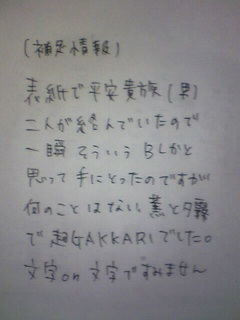 (補足情報)
表紙で平安貴族(男)
二人が絡んでいたので
一瞬そういうBLかと
思って手にとったのですが
何のことはない薫と夕霧
で超GAKKARIでした。
文字on文字ですみません